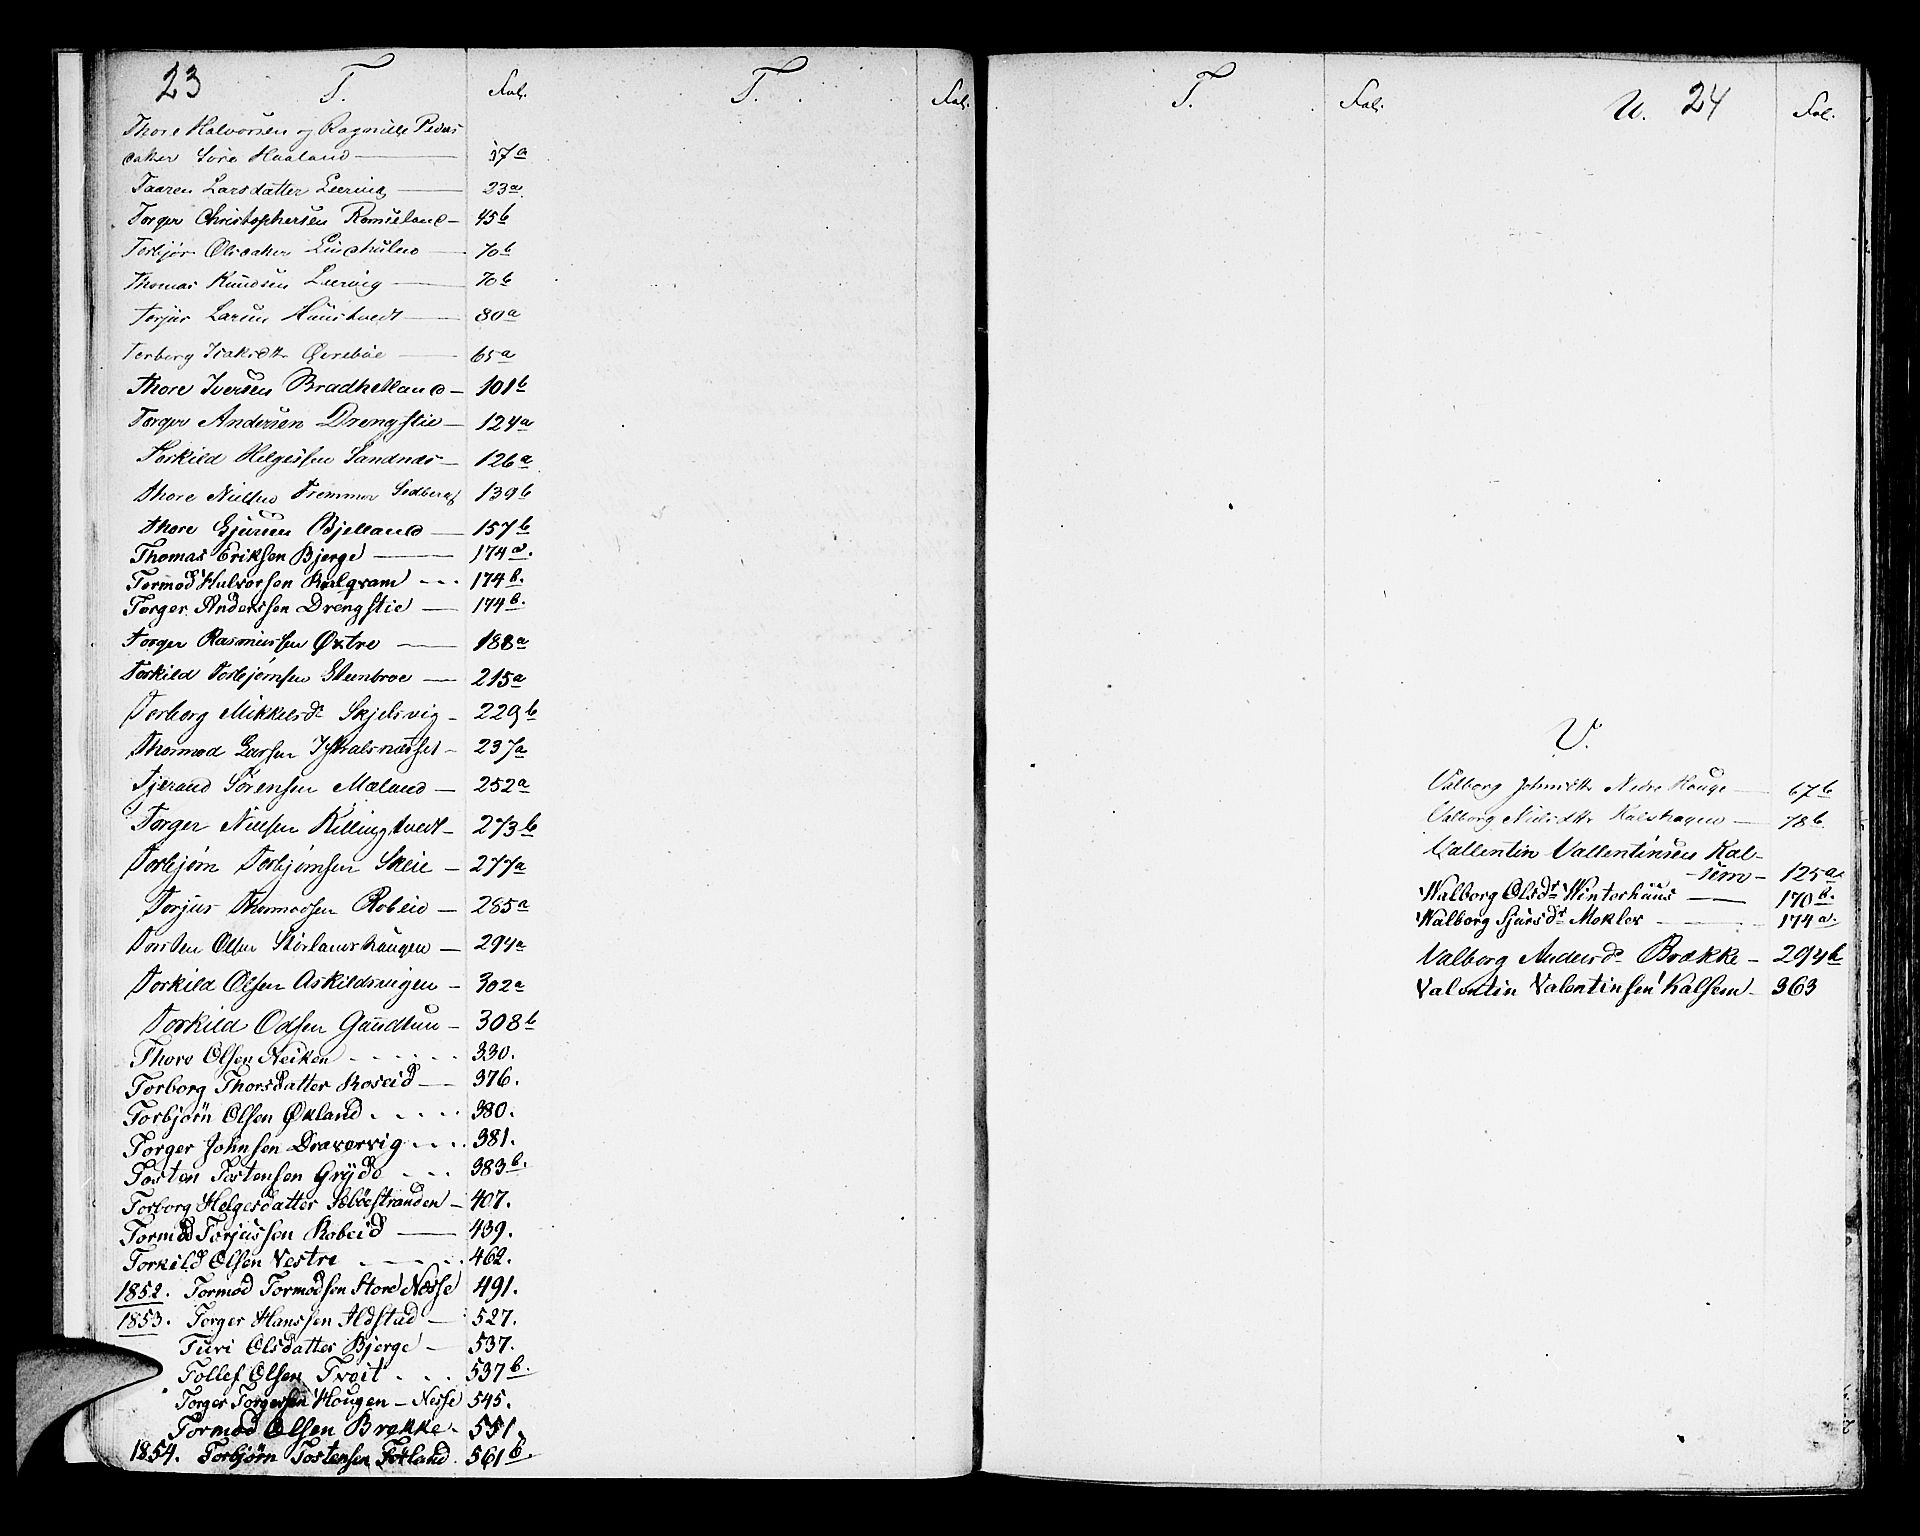 23
T.
Fol.
Thore Halvorsen og Ragnille Peders
datter Søre Haaland — 17a
Taaren Larsdatter Leervig — 23a
Torger Christophersen Ramsland — 45b
Torbjør Olsdatter — 70b
Thomas Knudsen Leervig — 70b
Torjus Larsen Haustvedt — 80a
Torborg Isaksdtr Øvrebøe — 65a
Thore Iversen Bradhelland — 101b
Torger Andersen Drengstie — 124a
Torkild Helgessen Sandnæs — 126a
Thore Nielsen Tremmor Sedberg 139b
Thore Sjursen Bjelland — 157b
Thomas Eriksen Bjerge — 174a.
Tormod Halvorsen Kalgram - - - 174b.
Torger Anderssen Drengstie — 174b.
Torger Rasmussen Øxtre — 188a
Torkild Torbjørnsen Steenbroe — 215a
Torborg Mikkelsdr Skjelsvig - 229b
Thormod Larsen 237a
Tjerand Sørensen Mæland - 252a
Torger Nielsen Killingtvedt - 273b
Torbjørn Torbjørnsen Skeie - 277a
Torjus Thormodsen Robeid - 285a
Torsten Olsen Stirlandshaugen - 294a
Torkild Olsen Askildsningen - 302a
Torkild Olsen Gaudtun - 308b
Thore Olsen Neiken - - - - - - 330.
Torborg Thorsdatter Roseid — 376.
Torbjørn Olsen Økland . - - - - 380.
Torger Johnsen Draxervig - - - . 381.
Tosten Tostensen Gryde - - - 383b.
Torborg Helgesdatter Sebøestranden - 407.
Tormod Torjussen Robeid — 439.
Torkild Olsen Vestre - - - - - 462.
1852. Tormod Tormodsen Store Nesse 491.
1853. Torger Hanssen Ildstad — 527.
Turi Olsdatter Bjerge — 537.
Tollef Olsen Tveit . - - 537b.
Torger Torgersen Hougen - Nesse 545.
Tormod Olsen Brekke - 551.
1854. Torbjørn Tostensen Føland. 561b.
T.
Fol.
T.
Fol.
U. 24
Fol.
V.
Valborg Johnsdtr Nedre Houge — 67b
Valborg Nielsdtr Kalshagen — 78b
Vallentin Vallentinsen Kal-
sem - 125a
Walborg Olsdr Winterhuus — 170b.
Walborg Sjursdr Mokler — 174a.
Valborg Andersdr Brække - 294b
Valentin Valentinsen Kalsem - 363